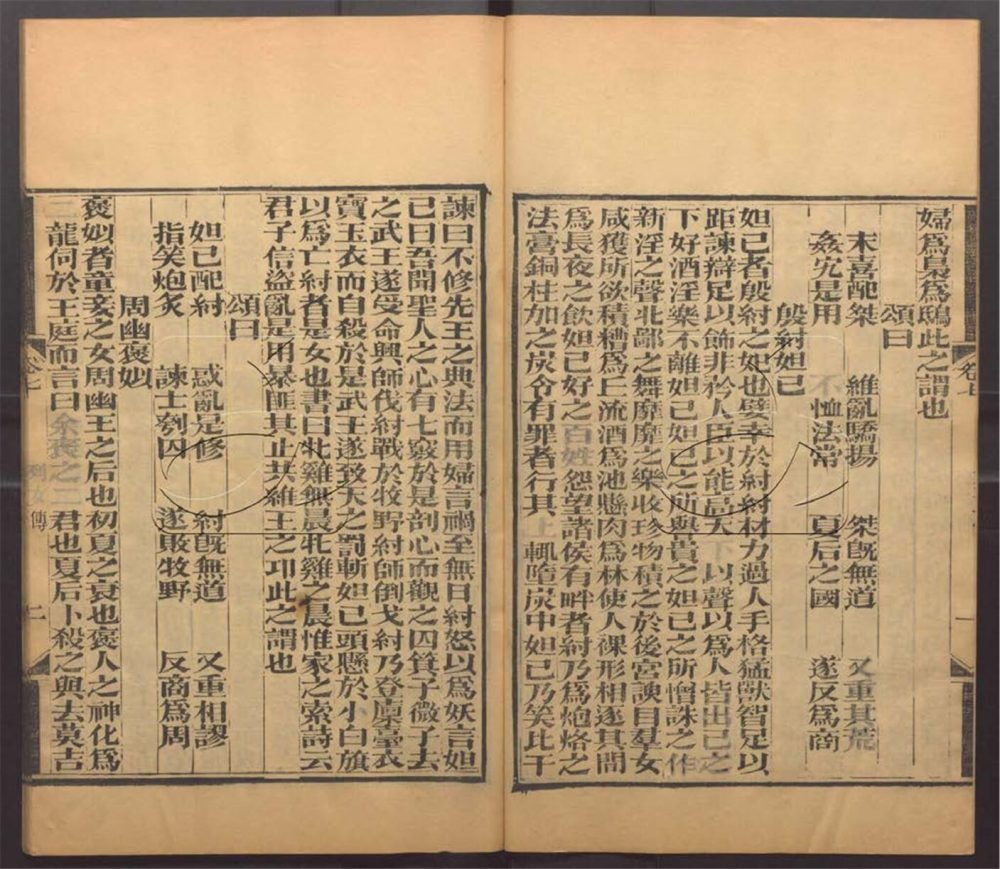 婦爲梟爲鴟此之謂也
頌曰
末喜配桀　維亂驕揚　桀旣無道　又重其荒
姦宄是用　不恤法常　夏后之國　遂反爲商
殷紂妲己
妲己者殷紂之妃也嬖幸於紂紂材力過人手格猛獸智足以
距諫辯足以飾非矜人臣以能高天下以聲以爲人皆出己之
下好酒淫樂不離妲己妲己之所與貴之妲己之所憎誅之作
新淫之聲北鄙之舞靡靡之樂收珍物積之於後宮諛臣羣女
咸獲所欲積糟爲丘流酒爲池懸肉爲林使人裸形相逐其閒
爲長夜之飮妲己好之百姓怨望諸侯有畔者紂乃爲炮烙之
法膏銅柱加之炭令有罪者行其上輒墮炭中妲己乃笑比干
卷七
一
諫曰不修先王之典法而用婦言禍至無日紂怒以爲妖言妲
己曰吾聞聖人之心有七竅於是剖心而觀之囚箕子微子去
之武王遂受命興師伐紂戰於牧野紂師倒戈紂乃登廩臺衣
寶玉衣而自殺於是武王遂致天之罰斬妲己頭懸於小白旗
以爲亡紂者是女也書曰牝雞無晨牝雞之晨惟家之索詩云
君子信盜亂是用暴匪其止共維王之卭此之謂也
頌曰
妲己配紂　惑亂是修　紂旣無道　又重相謬
指笑炮炙　諫士刳囚　遂敗牧野　反商爲周
周幽褒姒
褒姒者童妾之女周幽王之后也初夏之衰也褒人之神化爲
二龍伺於王庭而言曰余褒之二君也夏后卜殺之與去莫吉
卷七
列女傳
二